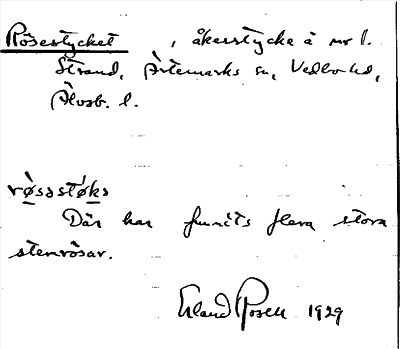 Rösestycket, åkerstycke å nr 1.
Strand, Ärtemarks sn, Vedbo hd,
Älvsb. l.
røsəstøks
Där har funnits flera stora
stenrösar.
Erland Rosell 1929